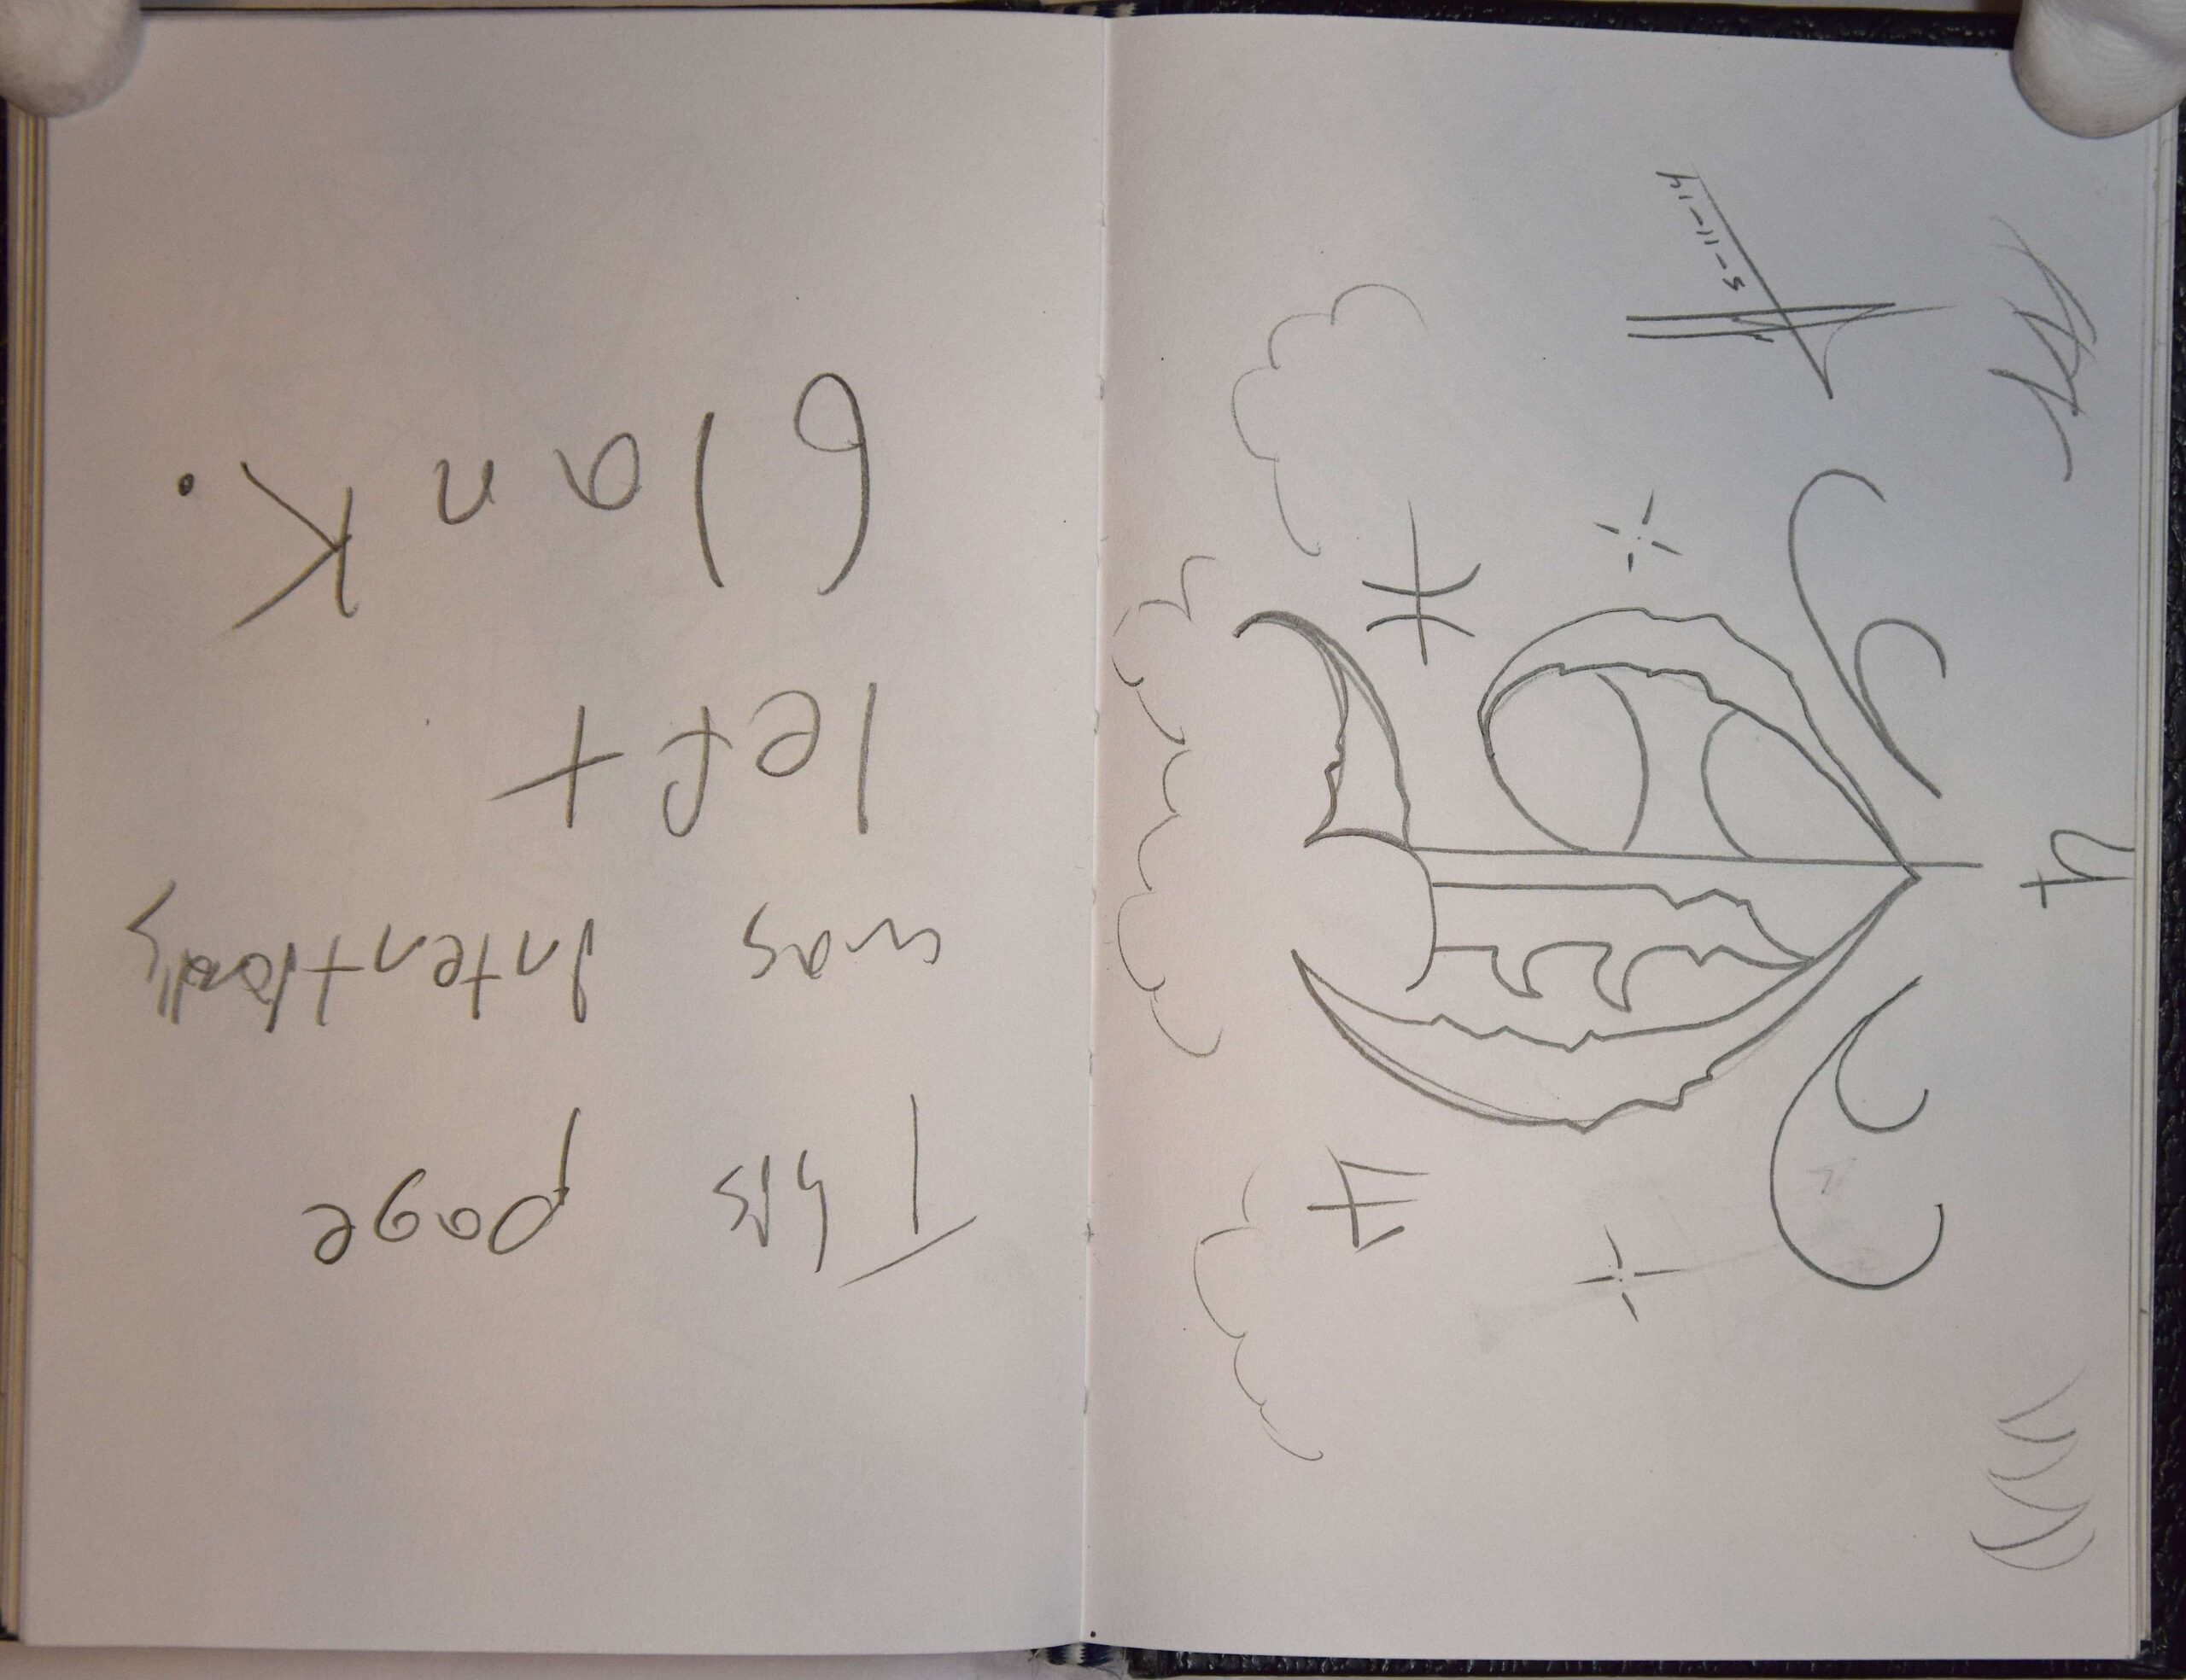 This page
was Intentionally
left
blank.
5-11-14